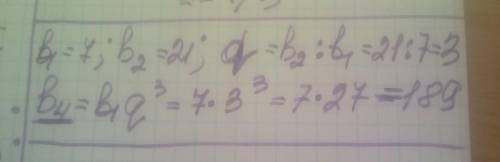 b₁=7; b₂=21; q=b₂:b₁=21:7=3
b₄=b₁q³=7·3³=7·27=189